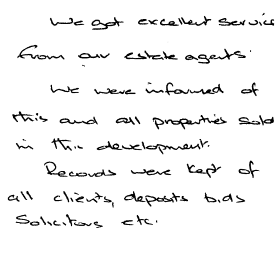 We got excellent service
from our estate agents.
We were informed of
this and all properties sold
in this development.
Records were kept of
all clients, deposits bids
Solicitors etc.